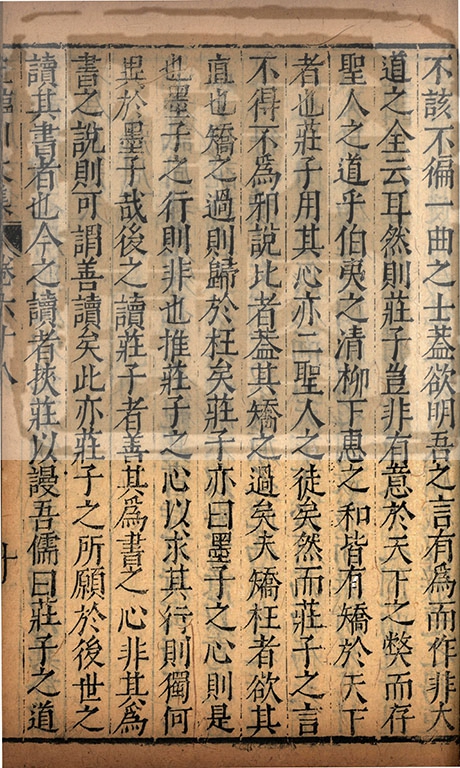 不該不徧一曲之士蓋欲明吾之言有爲而作非大
道之全云耳然則莊子豈非有意於天下之弊而存
聖人之道乎伯夷之清柳下惠之和皆有矯於天下
者也莊子用其心亦二聖人之徒矣然而莊子之言
不得不爲邪說比者蓋其矯之過矣夫矯枉者欲其
直也矯之過則歸於枉矣莊子亦曰墨子之心則是
也墨子之行則非也推莊子之心以求其行則獨何
異於墨子哉後之讀莊子者善其爲書之心非其爲
書之說則可謂善讀矣此亦莊子之所願於後世之
讀其書者也今之讀者挾莊以謾吾儒曰莊子之道
王臨川文集 卷六十八